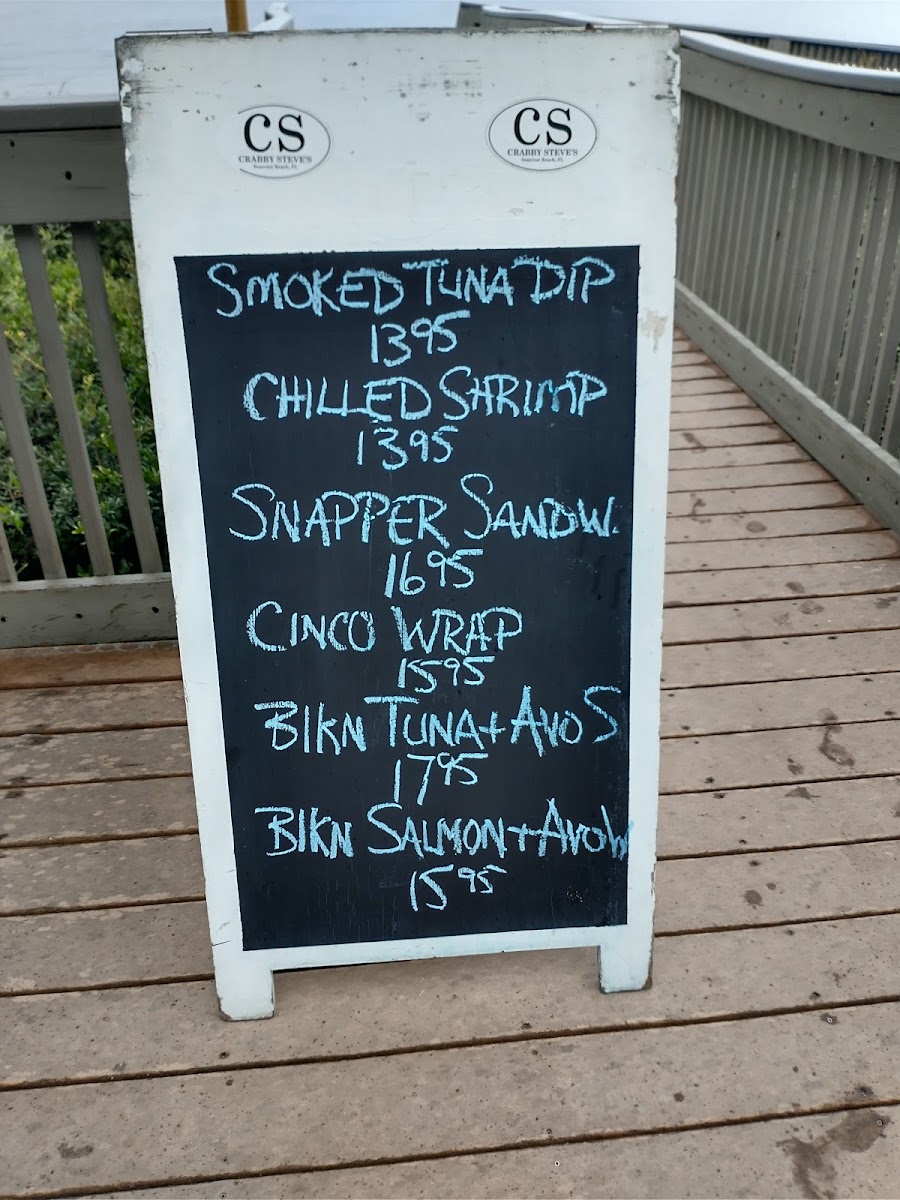 CS
CRABBY STEVE'S
CS
CRABBY STEVE'S
SMOKED TUNA DIP
13 95
CHILLED SHRIMP
13 95
SNAPPER SANDW.
16 95
CINCO WRAP
15 95
BlKN TUNA + AVO S
17 95
BlKN SALMON + AVO W
15 95